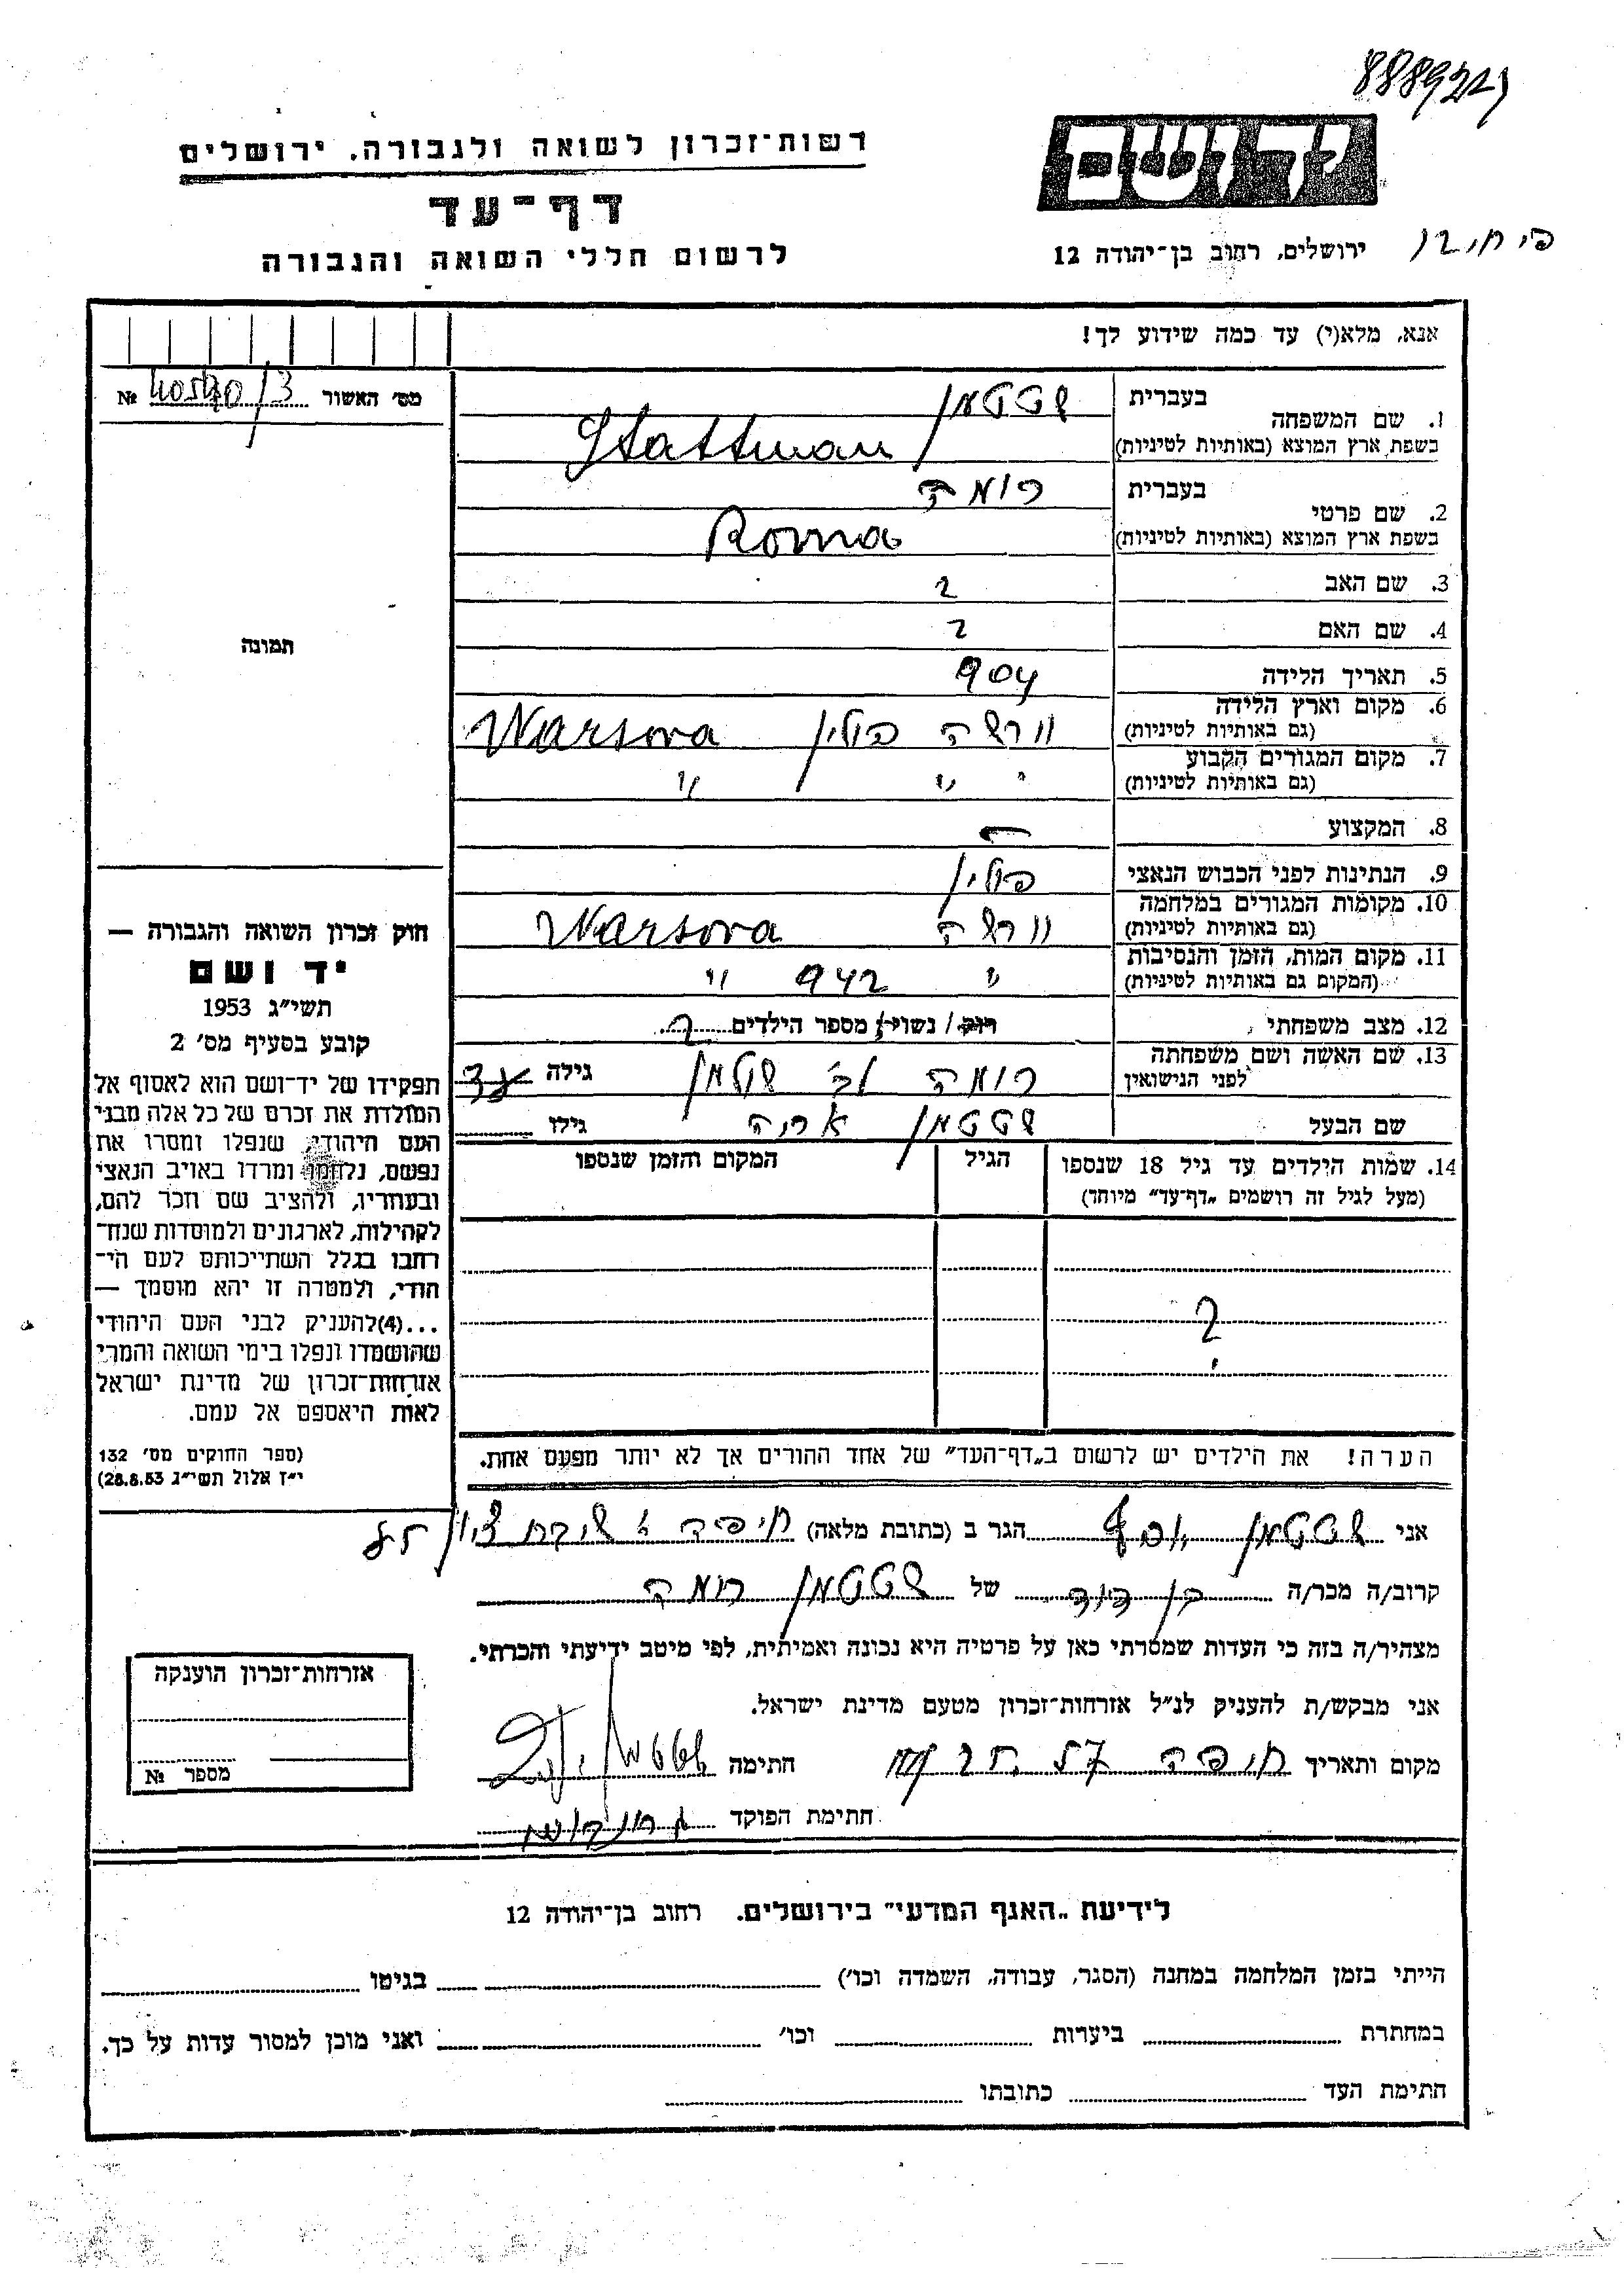 8889227
רשות־זכרון לשואה ולגבורה. ירושלים
יד ושם
דף־עד
ירושלים, רחוב בן־יהודה 12
לרשום חללי השואה והגבורה
אנא, מלא(י) עד כמה שידוע לך!
מס׳ האשור № /3
1. שם המשפחה
בעברית שטטמן
בשפת ארץ המוצא (באותיות לטיניות) Stattman
2. שם פרטי
בעברית רומה
בשפת ארץ המוצא (באותיות לטיניות) Roma
3. שם האב ?
4. שם האם ?
תמונה
5. תאריך הלידה 904
6. מקום וארץ הלידה
(גם באותיות לטיניות) וורשה פולין Warsova
7. מקום המגורים הקבוע
(גם באותיות לטיניות) " " "
8. המקצוע —
9. הנתינות לפני הכבוש הנאצי פולין
10. מקומות המגורים במלחמה
(גם באותיות לטיניות) וורשה Warsova
11. מקום המות, הזמן והנסיבות
(המקום גם באותיות לטיניות) " 942 "
12. מצב משפחתי רווק/ נשוי/ מספר הילדים ?
13. שם האשה ושם משפחתה
לפני הנישואין רומה שטטמן גילה
שם הבעל שטטמן אריה גילו
14. שמות הילדים עד גיל 18 שנספו
(מעל לגיל זה רושמים „דף־עד" מיוחד)
הגיל
המקום והזמן שנספו
?
הערה! את הילדים יש לרשום ב„דף־העד" של אחד ההורים אך לא יותר מפעם אחת.
חוק זכרון השואה והגבורה —
יד ושם
תשי״ג 1953
קובע בסעיף מס׳ 2
תפקידו של יד־ושם הוא לאסוף אל
המולדת את זכרם של כל אלה מבני
העם היהודי, שנפלו ומסרו את
נפשם, נלחמו ומרדו באויב הנאצי
ובעוזריו, ולהציב שם וזכר להם,
לקהילות, לארגונים ולמוסדות שנח־
רבו בגלל השתייכותם לעם הי־
הודי, ולמטרה זו יהא מוסמך —
...(4) להעניק לבני העם היהודי
שהושמדו ונפלו בימי השואה והמרי
אזרחות־זכרון של מדינת ישראל
לאות היאספם אל עמם.
(ספר החוקים מס׳ 132
י״ז אלול תשי״ג 28.8.53)
אני שטטמן יוסף הגר ב (כתובת מלאה) חיפה
קרוב/ה מכר/ה בן דוד של שטטמן רומה
מצהיר/ה בזה כי העדות שמסרתי כאן על פרטיה היא נכונה ואמיתית, לפי מיטב ידיעתי והכרתי.
אני מבקש/ת להעניק לנ״ל אזרחות־זכרון מטעם מדינת ישראל.
מקום ותאריך חיפה חתימה שטטמן
חתימת הפוקד
אזרחות־זכרון הוענקה
מספר №
לידיעת „האגף המדעי" בירושלים. רחוב בן־יהודה 12
הייתי בזמן המלחמה במחנה (הסגר, עבודה, השמדה וכו׳) בגיטו
במחתרת ביערות וכו׳ ואני מוכן למסור עדות על כך.
חתימת העד כתובתו